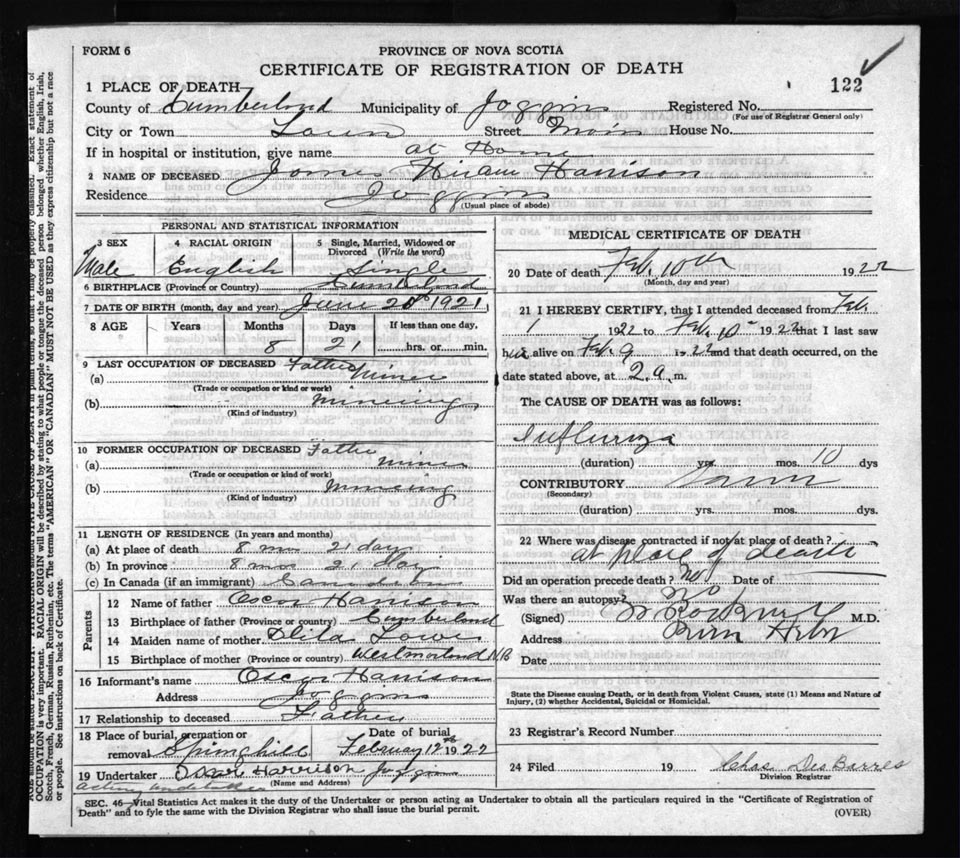 FORM 6
PROVINCE OF NOVA SCOTIA
CERTIFICATE OF REGISTRATION OF DEATH
122
1 PLACE OF DEATH
County of Cumberland Municipality of Joggins Registered No.
(For use of Registrar General only)
City or Town Town Street Main House No.
If in hospital or institution, give name at Home
2 NAME OF DECEASED James Hiram Harrison
Residence Joggins
(Usual place of abode)
PERSONAL AND STATISTICAL INFORMATION
3 SEX 4 RACIAL ORIGIN 5 Single, Married, Widowed or Divorced (Write the word)
Male English Single
6 BIRTHPLACE (Province or Country) Cumberland
7 DATE OF BIRTH (month, day and year) June 20th 1921
8 AGE Years Months Days If less than one day.
8 21 hrs. or min.
9 LAST OCCUPATION OF DECEASED Father
(a) Miner
(Trade or occupation or kind or work)
(b) Mineing
(Kind of industry)
10 FORMER OCCUPATION OF DECEASED Father
(a) Miner
(Trade or occupation or kind of work)
(b) Mineing
(Kind of industry)
11 LENGTH OF RESIDENCE (In years and months)
(a) At place of death 8 mos 21 days
(b) In province 8 mos 21 day
(c) In Canada (if an immigrant) Canadian
Parents
12 Name of father Oscar Harrison
13 Birthplace of father (Province or country) Cumberland
14 Maiden name of mother
15 Birthplace of mother (Province or country) Westmorland N.B
16 Informant's name Oscar Harrison
Address Joggins
17 Relationship to deceased Father
18 Place of burial, cremation or removal Springhill Date of burial February 12th 1922
19 Undertaker Oskar Harrison Joggins
(Name and Address)
acting undertaker
MEDICAL CERTIFICATE OF DEATH
20 Date of death Feb. 10th 1922
(Month, day and year)
21 I HEREBY CERTIFY, that I attended deceased from Feb.
1 1922 to Feb. 10 1922 that I last saw
him alive on Feb. 9 1922 and that death occurred, on the
date stated above, at 2.a.m.
The CAUSE OF DEATH was as follows:
Influenza
(duration) yrs. mos. 10 dys
CONTRIBUTORY
(Secondary)
(duration) yrs. mos. dys.
22 Where was disease contracted if not at place of death?
at place of death
Did an operation precede death? No Date of
Was there an autopsy? No
(Signed) M.D.
Address River Hebert
Date
State the Disease causing Death, or in death from Violent Causes, state (1) Means and Nature of
Injury, (2) whether Accidental, Suicidal or Homicidal.
23 Registrar's Record Number
24 Filed 19 Chas DesBarres
Division Registrar
SEC. 46—Vital Statistics Act makes it the duty of the Undertaker or person acting as Undertaker to obtain all the particulars required in the "Certificate of Registration of
Death" and to fyle the same with the Division Registrar who shall issue the burial permit.
(OVER)
OCCUPATION is very important. RACIAL ORIGIN will be described by stating to what people or tongue the deceased person belonged whether English, Irish,
Scotch, French, German, Russian, Ruthenian, etc. The terms "AMERICAN" OR "CANADIAN" MUST NOT BE USED as they express citizenship but not a race
or people. See instructions on back of Certificate.